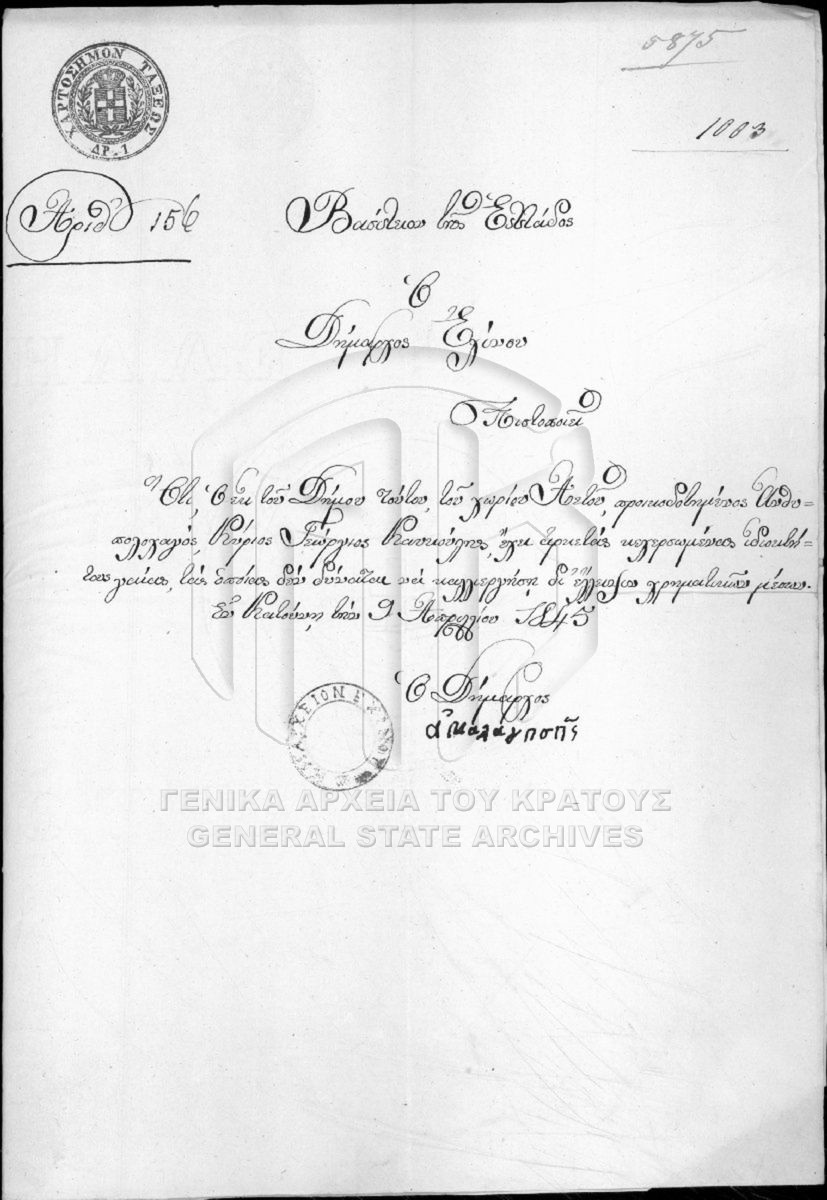 5875
ΧΑΡΤΟΣΗΜΟΝ ΤΑΞΕΩΣ
ΔΡ. 1
1003
Ἀριθ 156
Βασίλειον τῆς Ἑλλάδος
Ὁ
Δήμαρχος Ἐχίνου
Πιστοποιεῖ
Ὅτι, ὁ ἐκ τοῦ Δήμου τούτου, τοῦ χωρίου Ἀετοῦ, προικοδοτημένος Ἀνθυ-
πολοχαγός, Κύριος Γεώργιος ἔχει ἀρκετάς κεχερσωμένας ἰδιοκτή-
τους γαίας, τάς ὁποίας δέν δύναται νά καλλιεργήσῃ δι' ἔλλειψιν χρηματικῶν μέσων.
Ἐν Κατούνῃ τήν 9 Ἀπριλίου 1845
Ὁ Δήμαρχος
ΓΕΝΙΚΑ ΑΡΧΕΙΑ ΤΟΥ ΚΡΑΤΟΥΣ
GENERAL STATE ARCHIVES